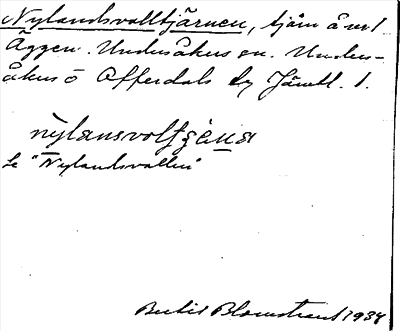 Nylandsvalltjärnen, tjärn å vvl
Äggen. Undersåkers sn. Unders-
åkers o Offerdals tg Jämtl. l.
nỳlansvoltjæ̀ɳa
Se "Nylandsvallen"
Bertil Blomstrand 1934